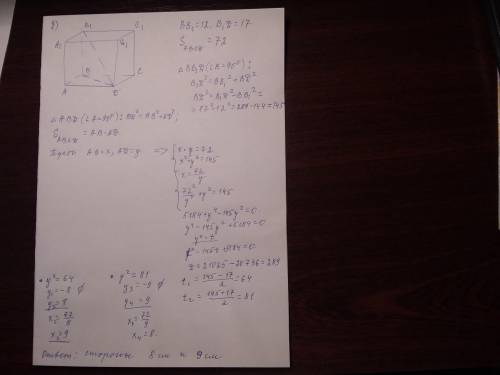 2)
B₁ C₁
A₁ D₁
B C
A D
BB₁=12, B₁D=17
S_ABCD = 72
△ BB₁D (∠B=90°):
B₁D²=BB₁²+BD²
BD²=B₁D²-BB₁²=
=17²-12²=289-144=145
△ABD (∠A=90°): BD²=AB²+AD²;
S_ABCD = AB·AD
Пусть AB=x, AD=y =>
x·y=72
x²+y²=145
x=72/y
72²/y²+y²=145
5184+y⁴-145y²=0
y⁴-145y²+5184=0
y²=t
t²-145t+5184=0
D=21025-20736=289
t₁=(145-17)/2=64
t₂=(145+17)/2=81
• y²=64
y₁=-8 ∅
y₂=8
x₂=72/8
x₂=9
• y²=81
y₃=-9 ∅
y₄=9
x₄=72/9
x₄=8
Ответ: стороны 8 см и 9 см